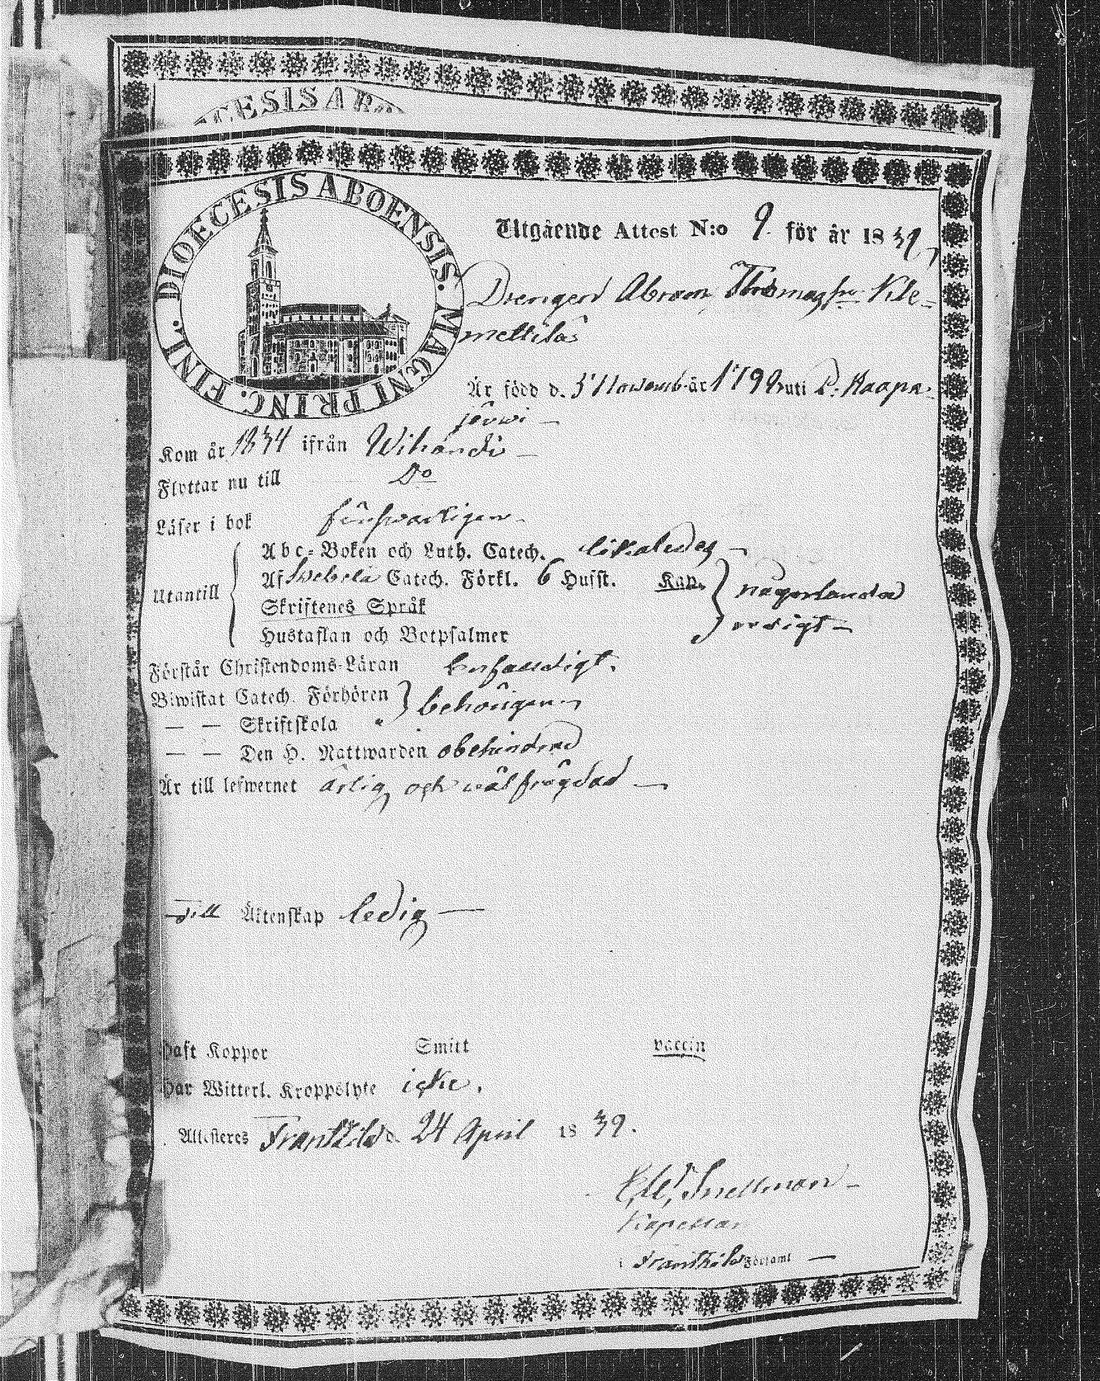 CESIS ABO
DIOECESIS ABOENSIS. MAGNI PRINC. FINL.
Utgående Attest N:o 9. för år 1839,
Drengen Abram Thomasson Kle-
mettilä
Är född d. 5 Novemb. år 1792 uti P. Haapa-
järwi —
Kom år 1834 ifrån Wihandi —
Flyttar nu till Do
Läser i bok försvarligen
Abc-Boken och Luth. Catech. likaledes —
Utantill Af Swebelii Catech. Förkl. 6 Hufst. Kap. någorlunda
Skriftenes Språk
Hustaflan och Botpsalmer redigt —
Förstår Christendoms-Läran enfaldigt.
Biwistat Catech. Förhören behörigen
— — Skriftskola "
— — Den H. Nattwarden obehindrad
Är till lefwernet ärlig och wälfrägdad —
Till Äktenskap ledig —
Haft Koppor Smitt vaccin
Har Witterl. Kroppslyte icke.
Attesteres Frantsila d. 24 April 1839.
Snellman —
Kapellan
i Frantsila Församl —